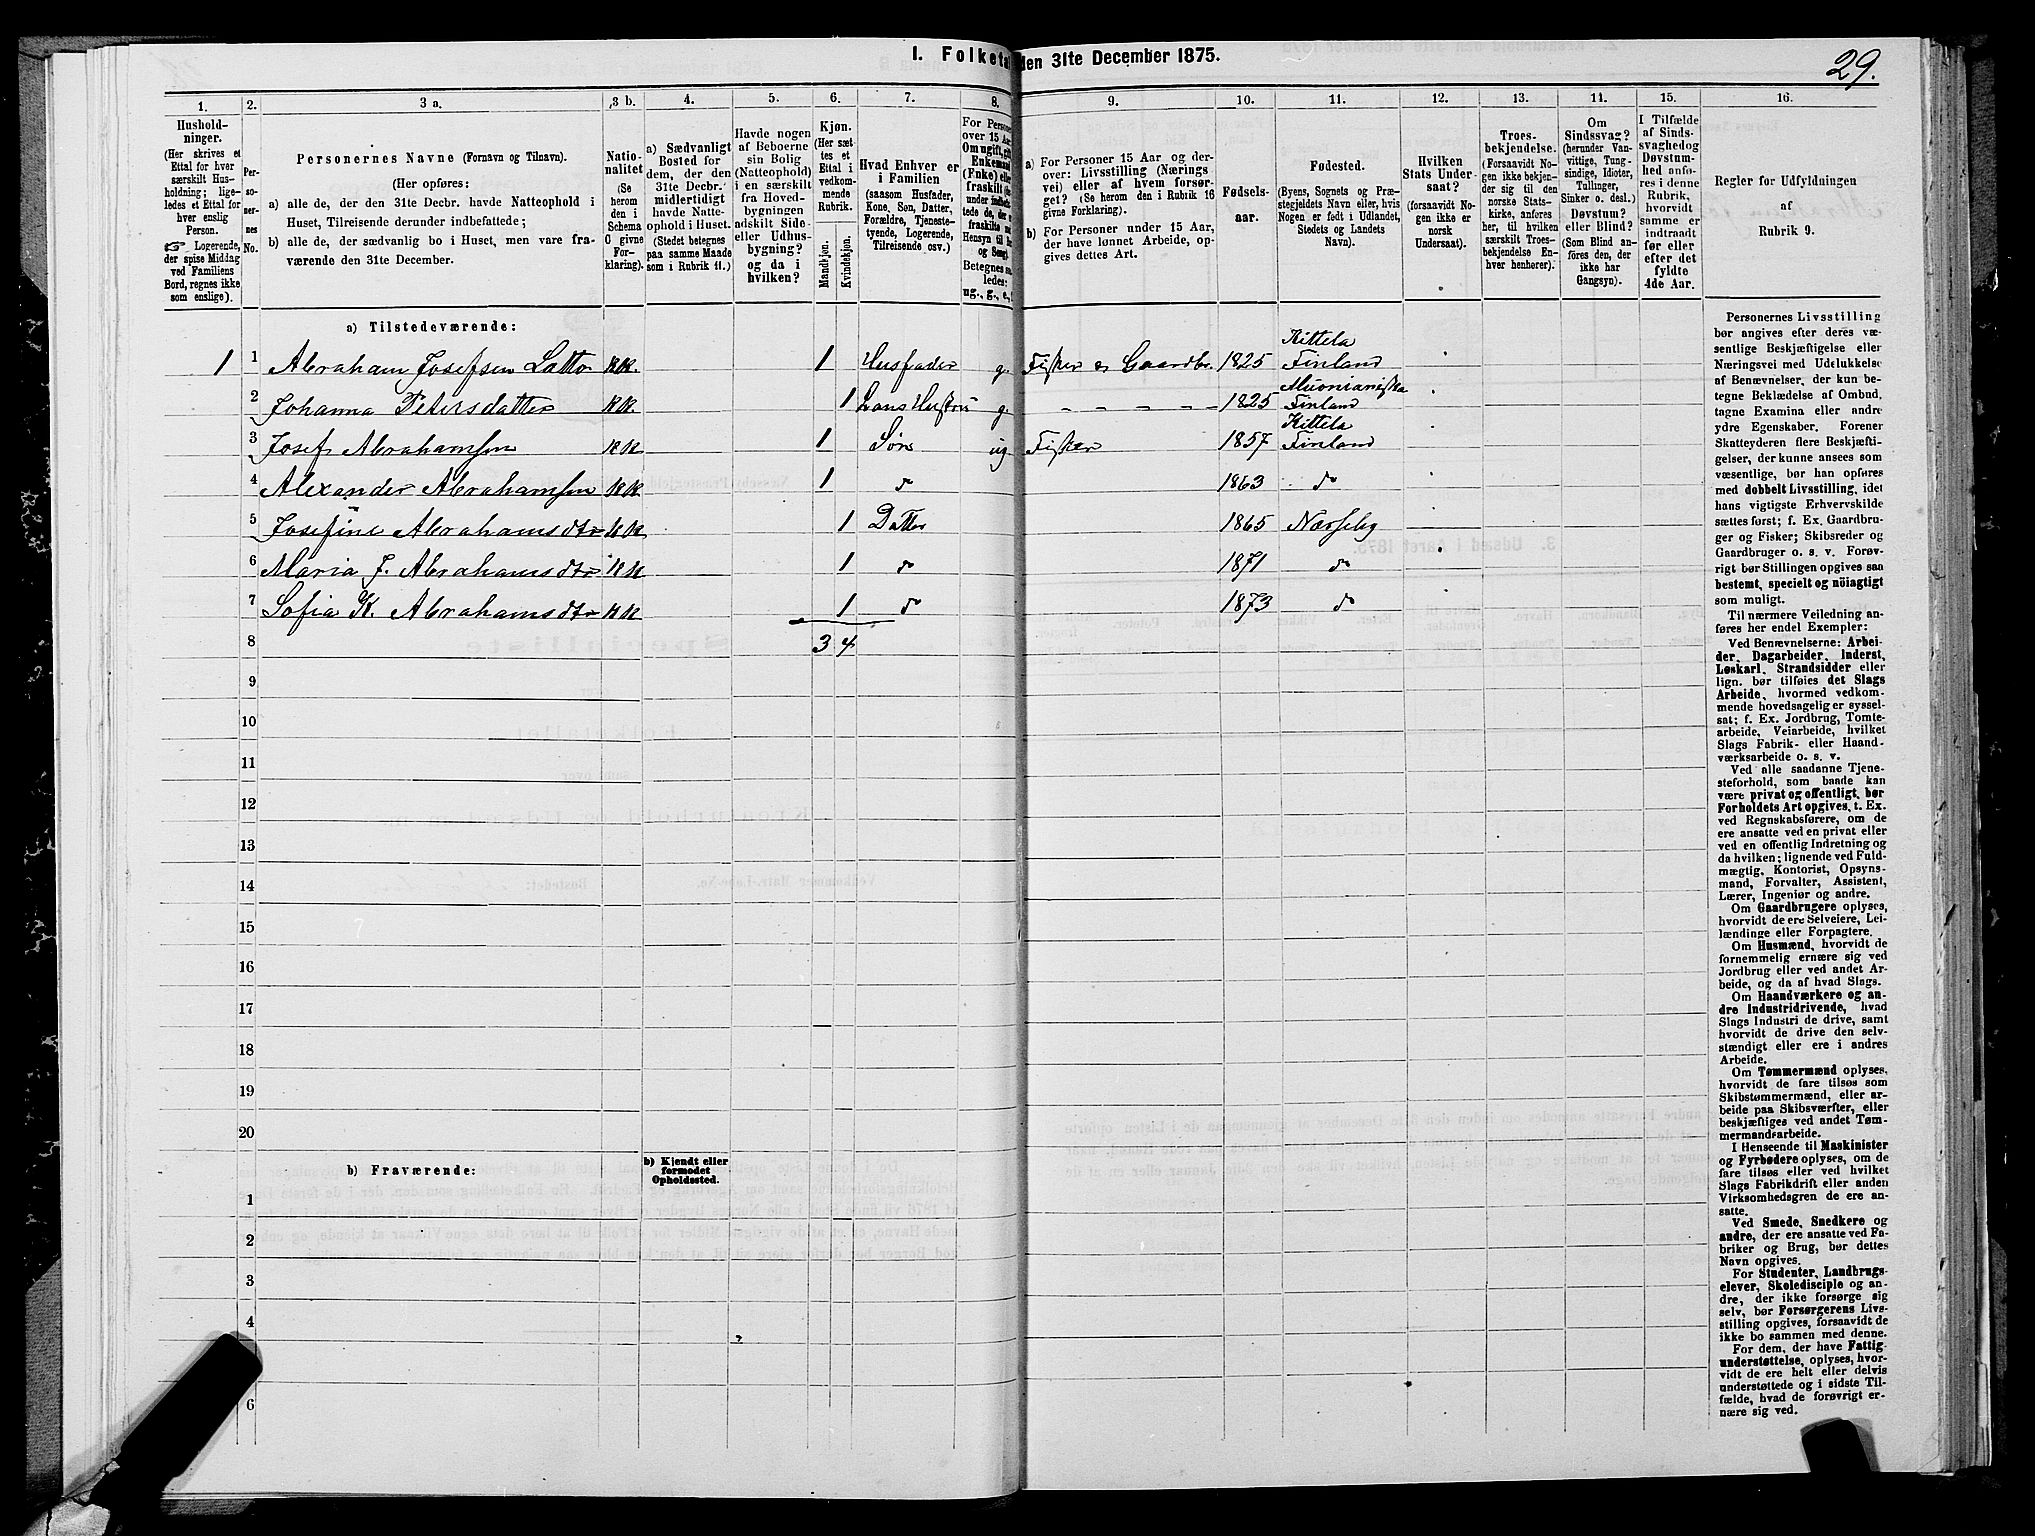 I. Folketal den 31te December 1875.
29.
1.
Hushold-
ninger.
(Her skrives et
Ettal for hver
særskilt Hus-
holdning; lige-
ledes et Ettal for
hver enslig
Person.
☞ Logerende,
der spise Middag
ved Familiens
Bord, regnes ikke
som enslige).
2.
Per-
so-
ner-
nes
No.
3 a.
Personernes Navne (Fornavn og Tilnavn).
(Her opføres:
a) alle de, der den 31te Decbr. havde Natteophold i
Huset, Tilreisende derunder indbefattede;
b) alle de, der sædvanlig bo i Huset, men vare fra-
værende den 31te December.
3 b.
Natio-
nalitet
(Se
herom
den i
Schema
O givne
For-
klaring).
4.
a) Sædvanligt
Bosted for
dem, der den
31te Decbr.
midlertidigt
havde Natte-
ophold i Huset.
(Stedet betegnes
paa samme Maade
som i Rubrik 11.)
5.
Havde nogen
af Beboerne
sin Bolig
(Natteophold)
i en særskilt
fra Hoved-
bygningen
adskilt Side-
eller Udhus-
bygning?
og da i
hvilken?
6.
Kjøn.
(Her sæt-
tes et
Ettal i
vedkom-
mende
Rubrik.
Mandkjøn.
Kvindekjøn.
7.
Hvad Enhver er
i Familien
(saasom Husfader,
Kone, Søn, Datter,
Forældre, Tjeneste-
tyende, Logerende,
Tilreisende osv.)
8.
For Personer
over 15 Aar
Om ugift, gift,
Enkemand
(Enke) eller
fraskilt
Betegnes saa-
ledes:
ug., g., e.,
9.
a) For Personer 15 Aar og der-
over: Livsstilling (Nærings-
vei) eller af hvem forsør-
get? (Se herom den i Rubrik 16
givne Forklaring).
b) For Personer under 15 Aar,
der have lønnet Arbeide, op-
gives dettes Art.
10.
Fødsels-
aar.
11.
Fødested.
(Byens, Sognets og Præ-
stegjeldets Navn eller, hvis
Nogen er født i Udlandet,
Stedets og Landets
Navn).
12.
Hvilken
Stats Under-
saat?
(forsaavidt No-
gen ikke er
norsk
Undersaat).
13.
Troes-
bekjendelse.
(Forsaavidt No-
gen ikke bekjen-
der sig til den
norske Stats-
kirke, anføres
her, til hvilken
særskilt Troes-
bekjendelse En-
hver henhører).
11.
Om
Sindssvag?
(herunder Van-
vittige, Tung-
sindige, Idioter,
Tullinger,
Sinker o. desl.)
Døvstum?
eller Blind?
(Som Blind an-
føres den, der
ikke har
Gangsyn).
15.
I Tilfælde
af Sinds-
svaghedog
Døvstum-
hed anfø-
res i denne
Rubrik,
hvorvidt
samme er
indtraadt
før eller
efter det
fyldte
4de Aar.
16.
Regler for Udfyldningen
af
Rubrik 9.
a) Tilstedeværende:
1 1 Abraham Josefsen Latto 1 Husfader g. Fisker og Gaardbr. 1825 Kittela Finland
2 Johanna Petersdatter 1 Hans Hustru g. - - - - - 1825 Muonianiska Finland
3 Josef Abrahamsen 1 Søn ug. Fisker 1857 Kittela Finland
4 Alexander Abrahamsen 1 do 1863 do
5 Josefine Abrahamsdtr 1 Datter 1865 Næsseby
6 Maria J. Abrahamsdtr 1 do 1871 do
7 Sofia K. Abrahamsdtr 1 do 1873 do
8 3 4
9
10
11
12
13
14
15
16
17
18
19
20
b) Fraværende:
b) Kjendt eller
formodet
Opholdssted.
1
2
3
4
5
6
Personernes Livsstilling
bør angives efter deres væ-
sentlige Beskjæftigelse eller
Næringsvei med Udelukkelse
af Benævnelser, der kun be-
tegne Beklædelse af Ombud,
tagne Examina eller andre
ydre Egenskaber. Forener
Skatteyderen flere Beskjæfti-
gelser, der kunne ansees som
væsentlige, bør han opføres
med dobbelt Livsstilling, idet
hans vigtigste Erhvervskilde
sættes først; f. Ex. Gaardbru-
ger og Fisker; Skibsreder og
Gaardbruger o. s. v. Forøv-
rigt bør Stillingen opgives saa
bestemt, specielt og nöiagtigt
som muligt.
Til nærmere Veiledning an-
føres her endel Exempler:
Ved Benævnelserne: Arbei-
der, Dagarbeider, Inderst,
Løskarl, Strandsidder eller
lign. bør tilføies det Slags
Arbeide, hvormed vedkom-
mende hovedsagelig er syssel-
sat; f. Ex. Jordbrug, Tomte-
arbeide, Veiarbeide, hvilket
Slags Fabrik- eller Haand-
værksarbeide o. s. v.
Ved alle saadanne Tjene-
steforhold, som baade kan
være privat og offentligt, bør
Forholdets Art opgives, t. Ex.
ved Regnskabsførere, om de
ere ansatte ved en privat eller
ved en offentlig Indretning og
da hvilken; lignende ved Fuld-
mægtig, Kontorist, Opsyns-
mand, Forvalter, Assistent,
Lærer, Ingeniør og andre.
Om Gaardbrugere oplyses,
hvorvidt de ere Selveiere, Lei-
lændinge eller Forpagtere.
Om Husmænd, hvorvidt de
fornemmelig ernære sig ved
Jordbrug eller ved andet Ar-
beide, og da af hvad Slags.
Om Haandværkere og an-
dre Industridrivende, hvad
Slags Industri de drive, samt
hvorvidt de drive den selv-
stændigt eller ere i andres
Arbeide.
Om Tømmermænd oplyses,
hvorvidt de fare tilsøs som
Skibstømmermænd, eller ar-
beide paa Skibsværfter, eller
beskjæftiges ved andet Tøm-
mermandsarbeide.
I Henseende til Maskinister
og Fyrbødere oplyses, om de
fare tilsøs eller ved hvilket
Slags Fabrikdrift eller anden
Virksomhedsgren de ere an-
satte.
Ved Smede, Snedkere og
andre, der ere ansatte ved Fa-
briker og Brug, bør dettes
Navn opgives.
For Studenter, Landbrugs-
elever, Skoledisciple og an-
dre, der ikke forsørge sig
selv, bør Forsørgerens Livs-
stilling opgives, forsaavidt de
ikke bo sammen med denne.
For dem, der have Fattig-
understøttelse, oplyses, hvor-
vidt de ere helt eller delvis
understøttede og i sidste Til-
fælde, hvad de forøvrigt er-
nære sig ved.